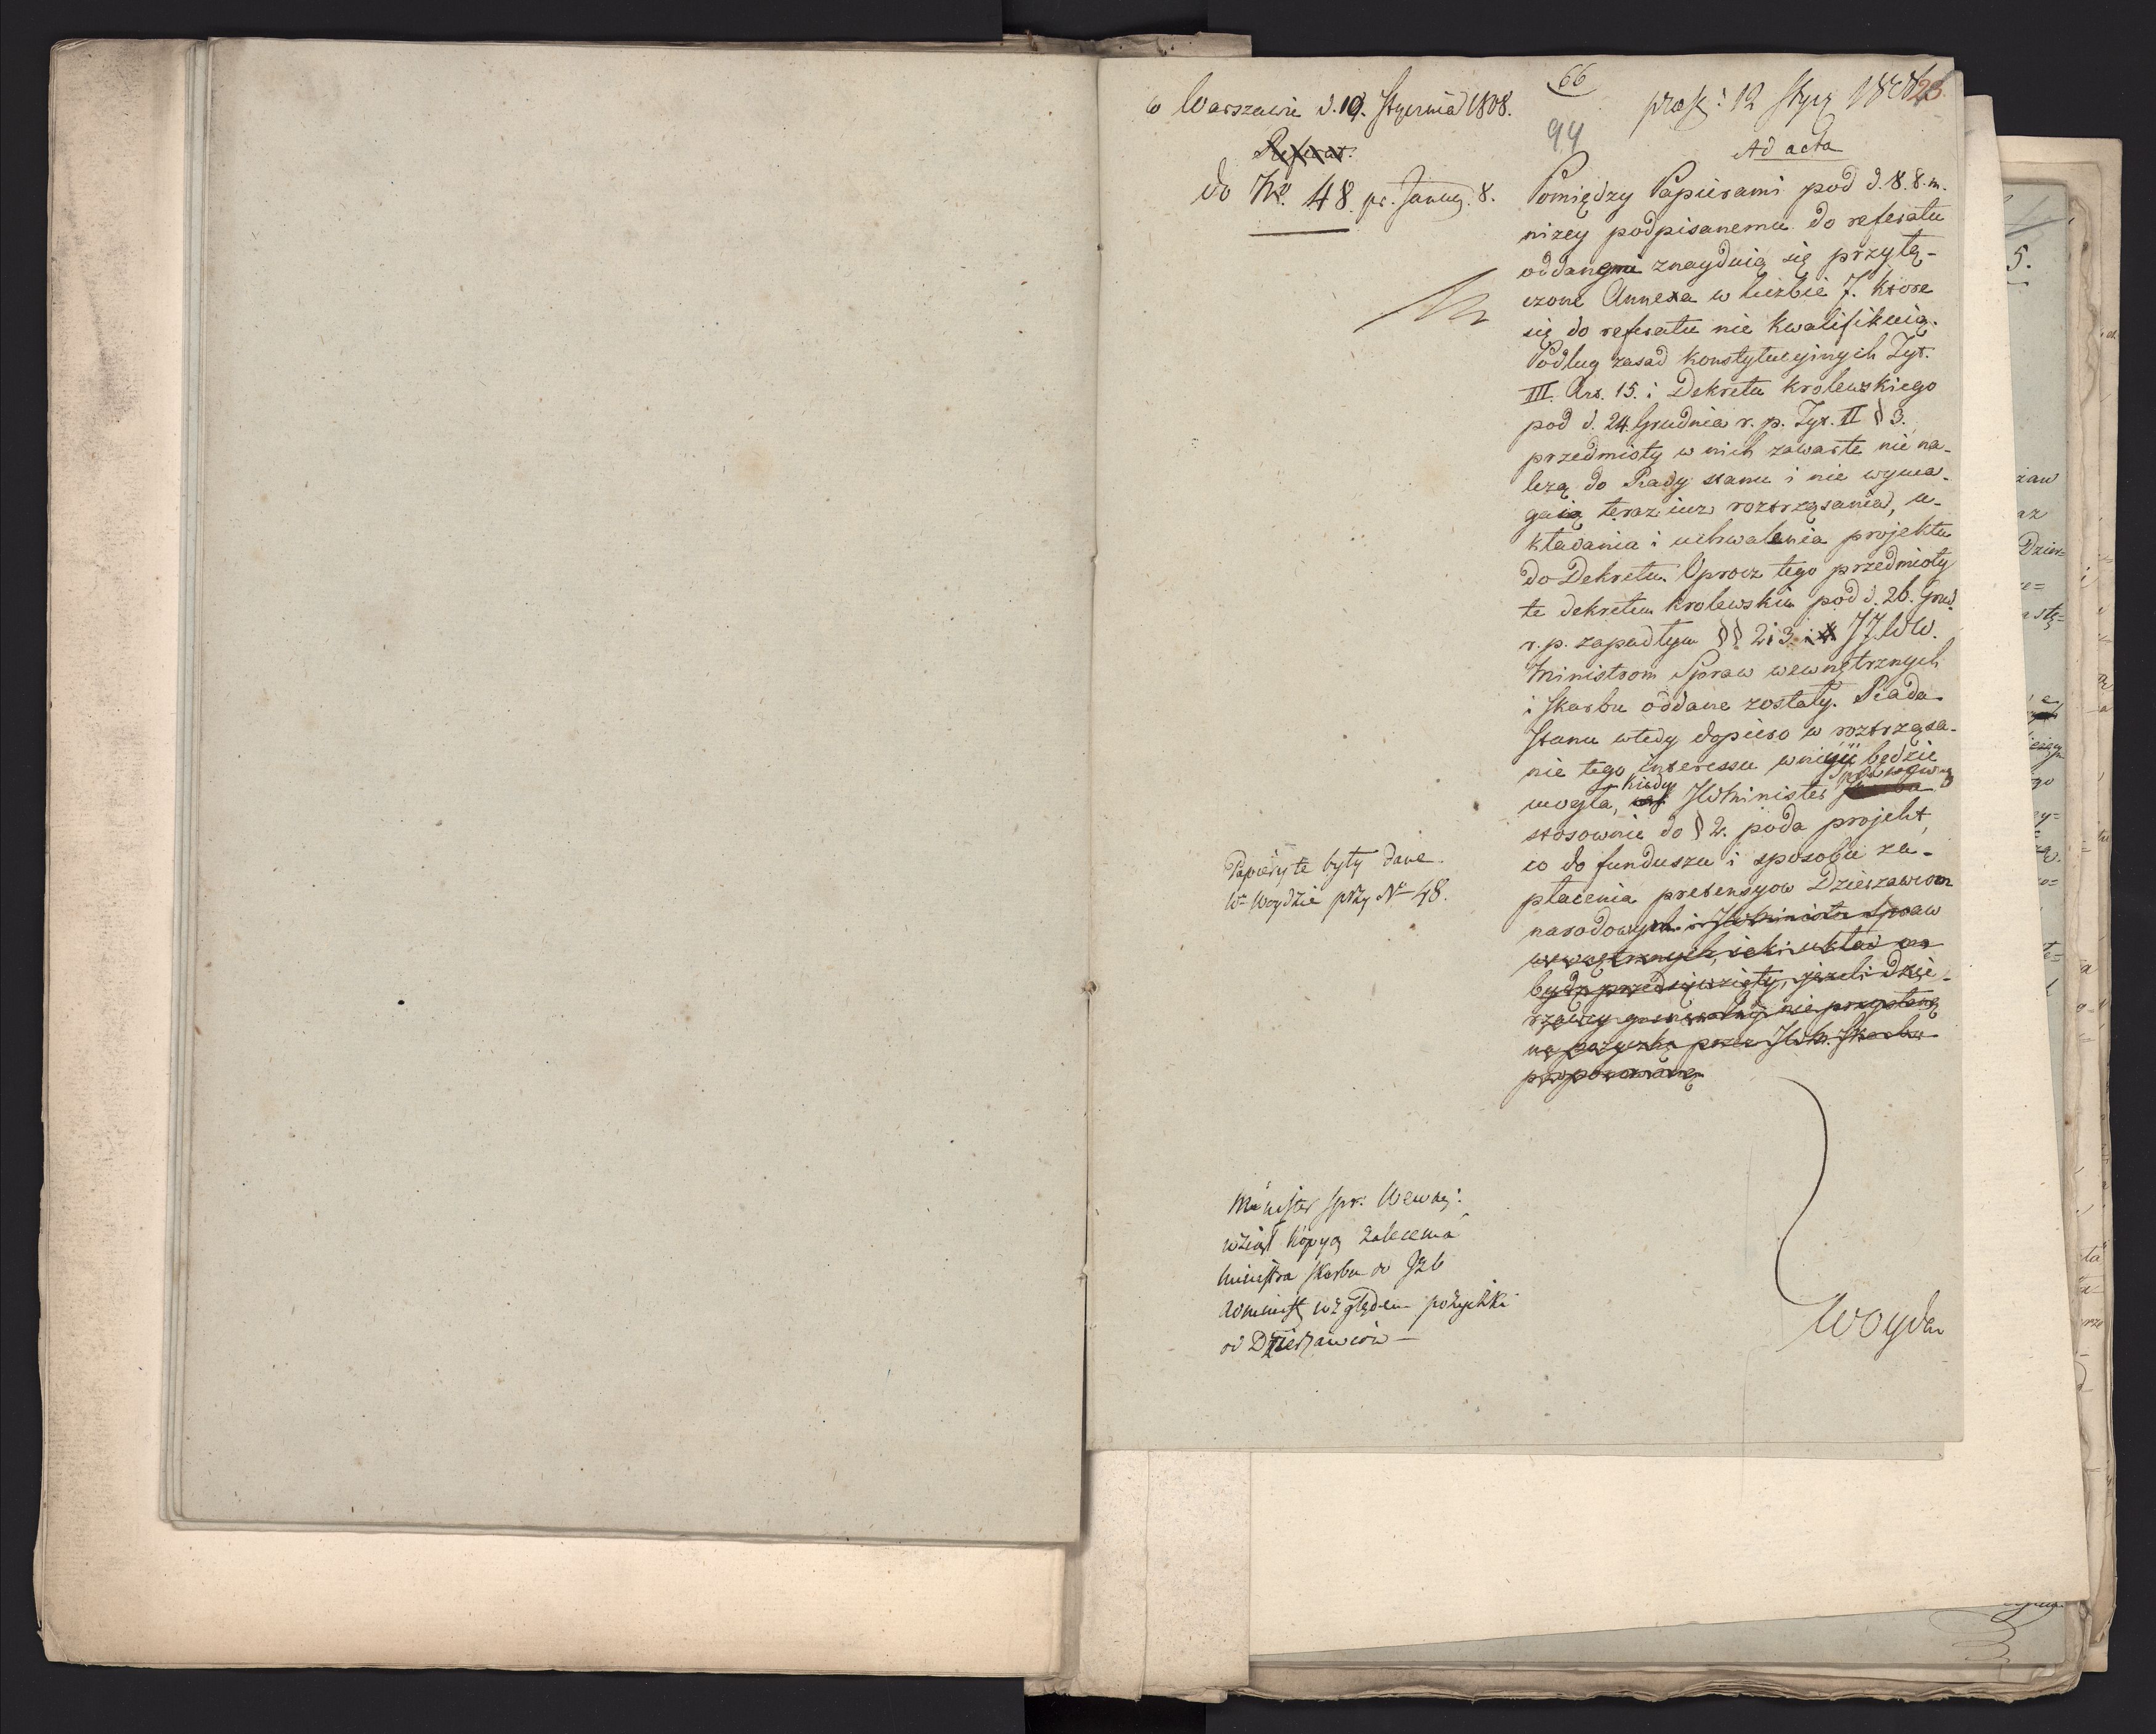 66
w Warszawie d. 10. Stycznia 1808.
Referat.
do No. 48 pr. Januar. 8.
94
Ad acta
Pomiędzy Papierami pod d. 8. 8. m.
niżey podpisanemu do referatu
oddanemi znayduią się przyłą-
czone Annexa w liczbie 7. które
się do referatu nie kwalifikuią.
Podług zasad konstytucyjnych Tyt.
III. Art. 15. i Dekretu krolewskiego
pod d. 24. Grudnia r. p. Tyt. II § 3.
przedmioty w nich zawarte nie na-
leżą do Rady stanu i nie wyma-
gaią teraz iuż roztrząsania, u-
kładania i uchwalenia projektu
do Dekretu. Oprocz tego przedmioty
te dekretem krolewskim pod d. 26. Grud.
r. p. zapadłym §§ 2 i 3. i 4. JJWW.
Ministrom Spraw wewnętrznych
i Skarbu oddane zostały. Rada
Stanu wtedy dopiero w roztrząsa-
nie tego interessu wniyść będzie
mogła, kiedy JWMinister spr. wewn.
stosownie do § 2. poda projekt,
co do funduszu i sposobu za-
płacenia pretensyow Dzierzawcom
narodowym i JWMinister Spraw
wewnętrznych, iaki układ ma
bydź przedsięwzięty, jeżeli dzie-
rzawcy generalnie nie przystaną
na pożyczkę przez JWM. Skarbu
proponowaną
Papiery te były dane
Wu Woydzie przy No 48.
Minister Spr: Wewnę:
wziął kopyą zalecenia
Ministra Skarbu do Izb
Administ. względem pożyczki
od Dzierzawców —
Woyda